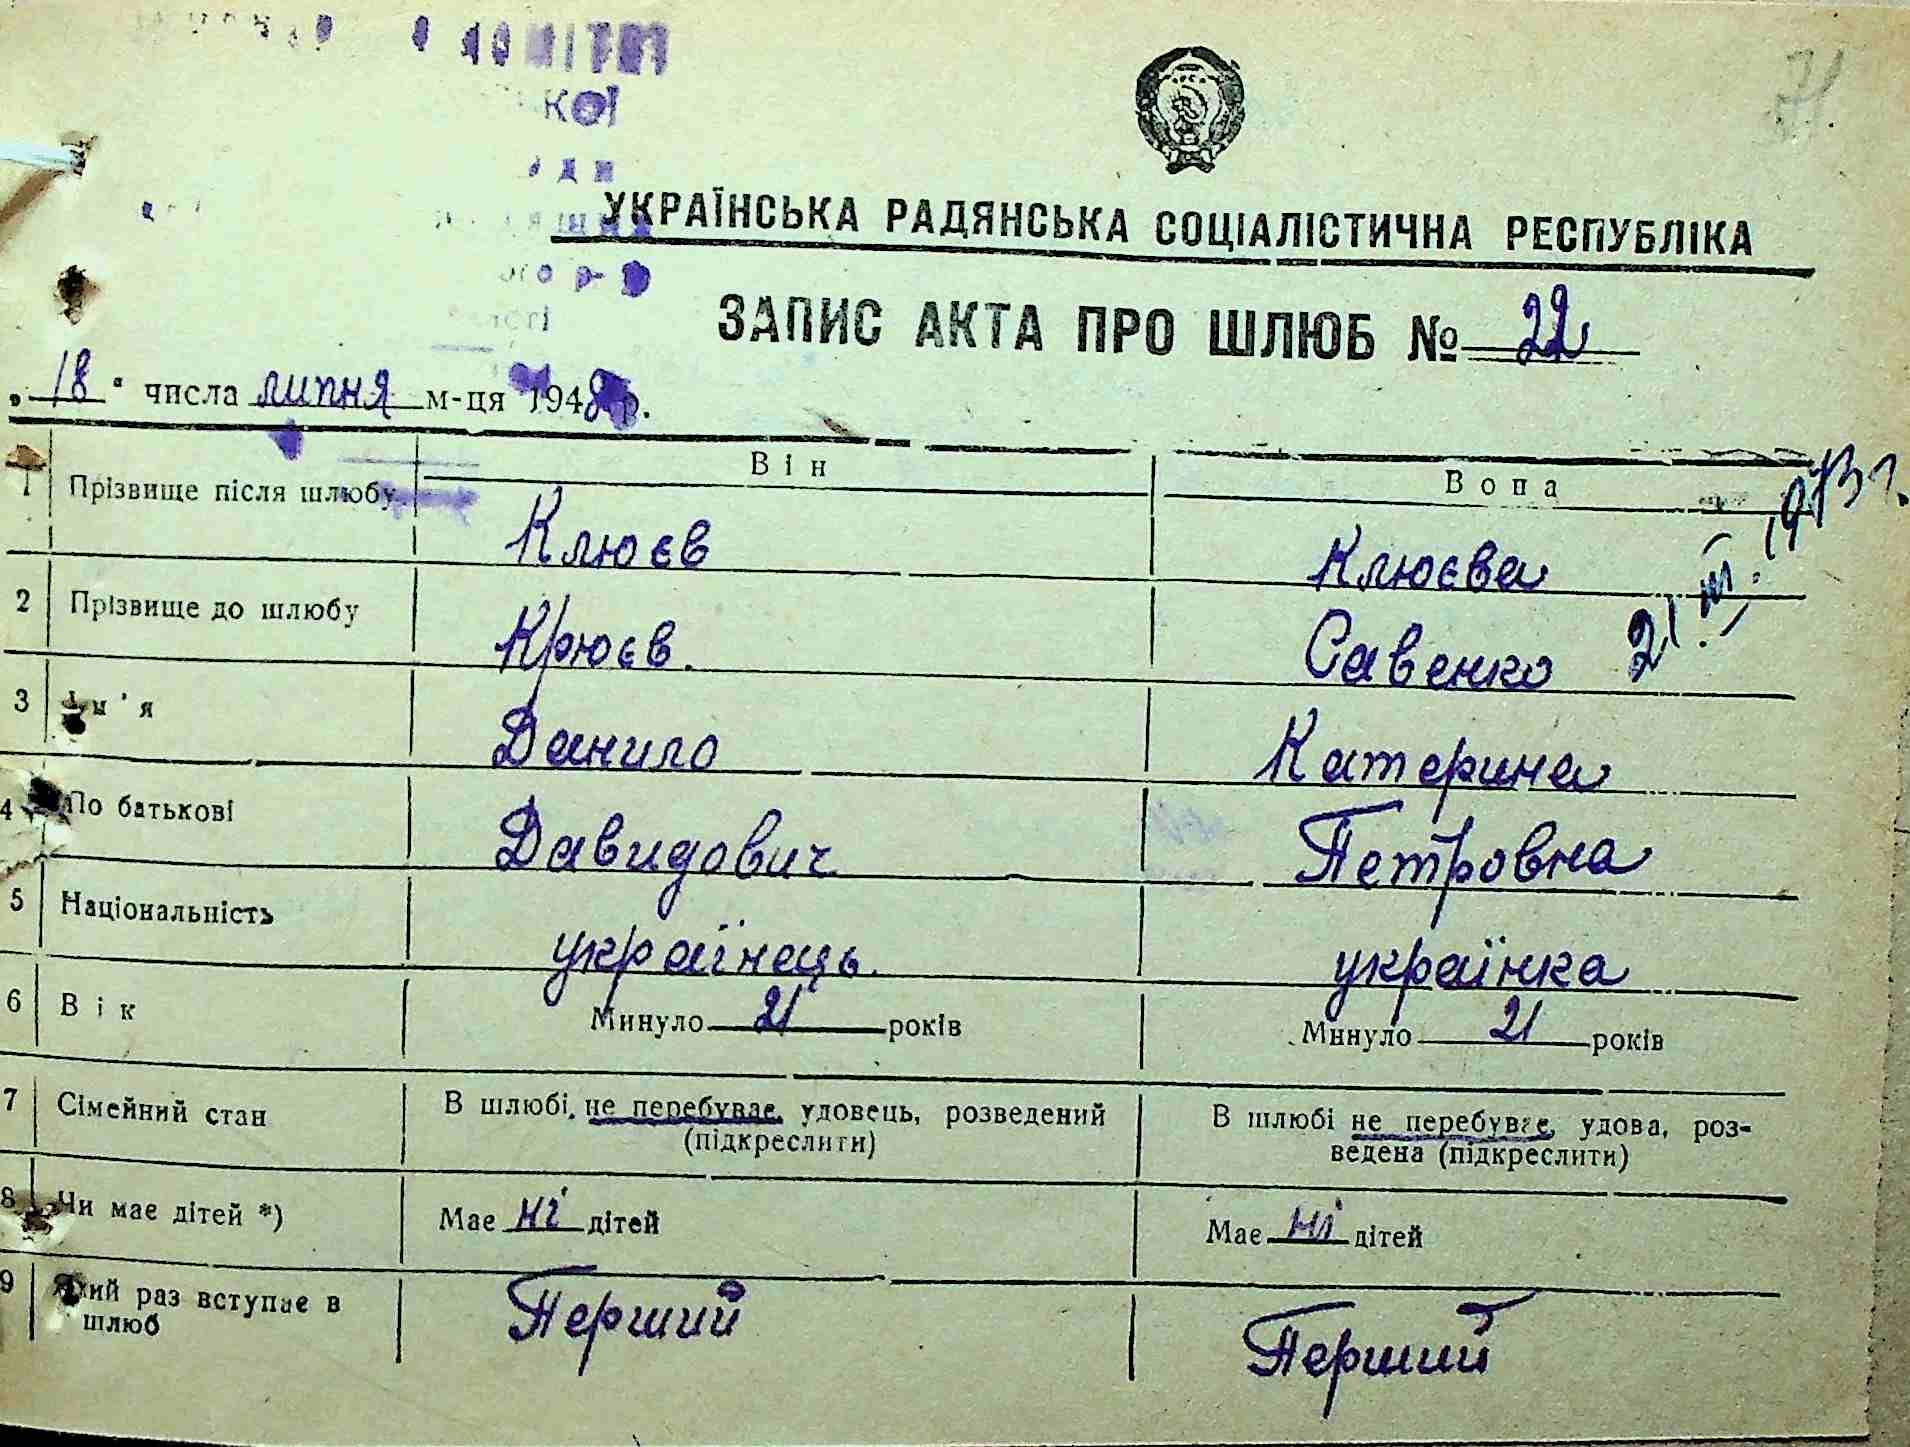 УКРАЇНСЬКА РАДЯНСЬКА СОЦІАЛІСТИЧНА РЕСПУБЛІКА
ЗАПИС АКТА ПРО ШЛЮБ № 22
„18“ числа липня м-ця 1948 р.
Він Вона
1 Прізвище після шлюбу Клюєв Клюєва
21 III. 1973 г.
2 Прізвище до шлюбу Крюєв. Савенко
3 Ім'я Данило Катерина
4 По батькові Давидович Петровна
5 Національність українець. українка
6 Вік Минуло 21 років Минуло 21 років
7 Сімейний стан В шлюбі, не перебуває, удовець, розведений (підкреслити) В шлюбі не перебуває, удова, роз-
ведена (підкреслити)
8 Чи має дітей *) Має ні дітей Має ні дітей
9 Який раз вступає в шлюб Перший Перший